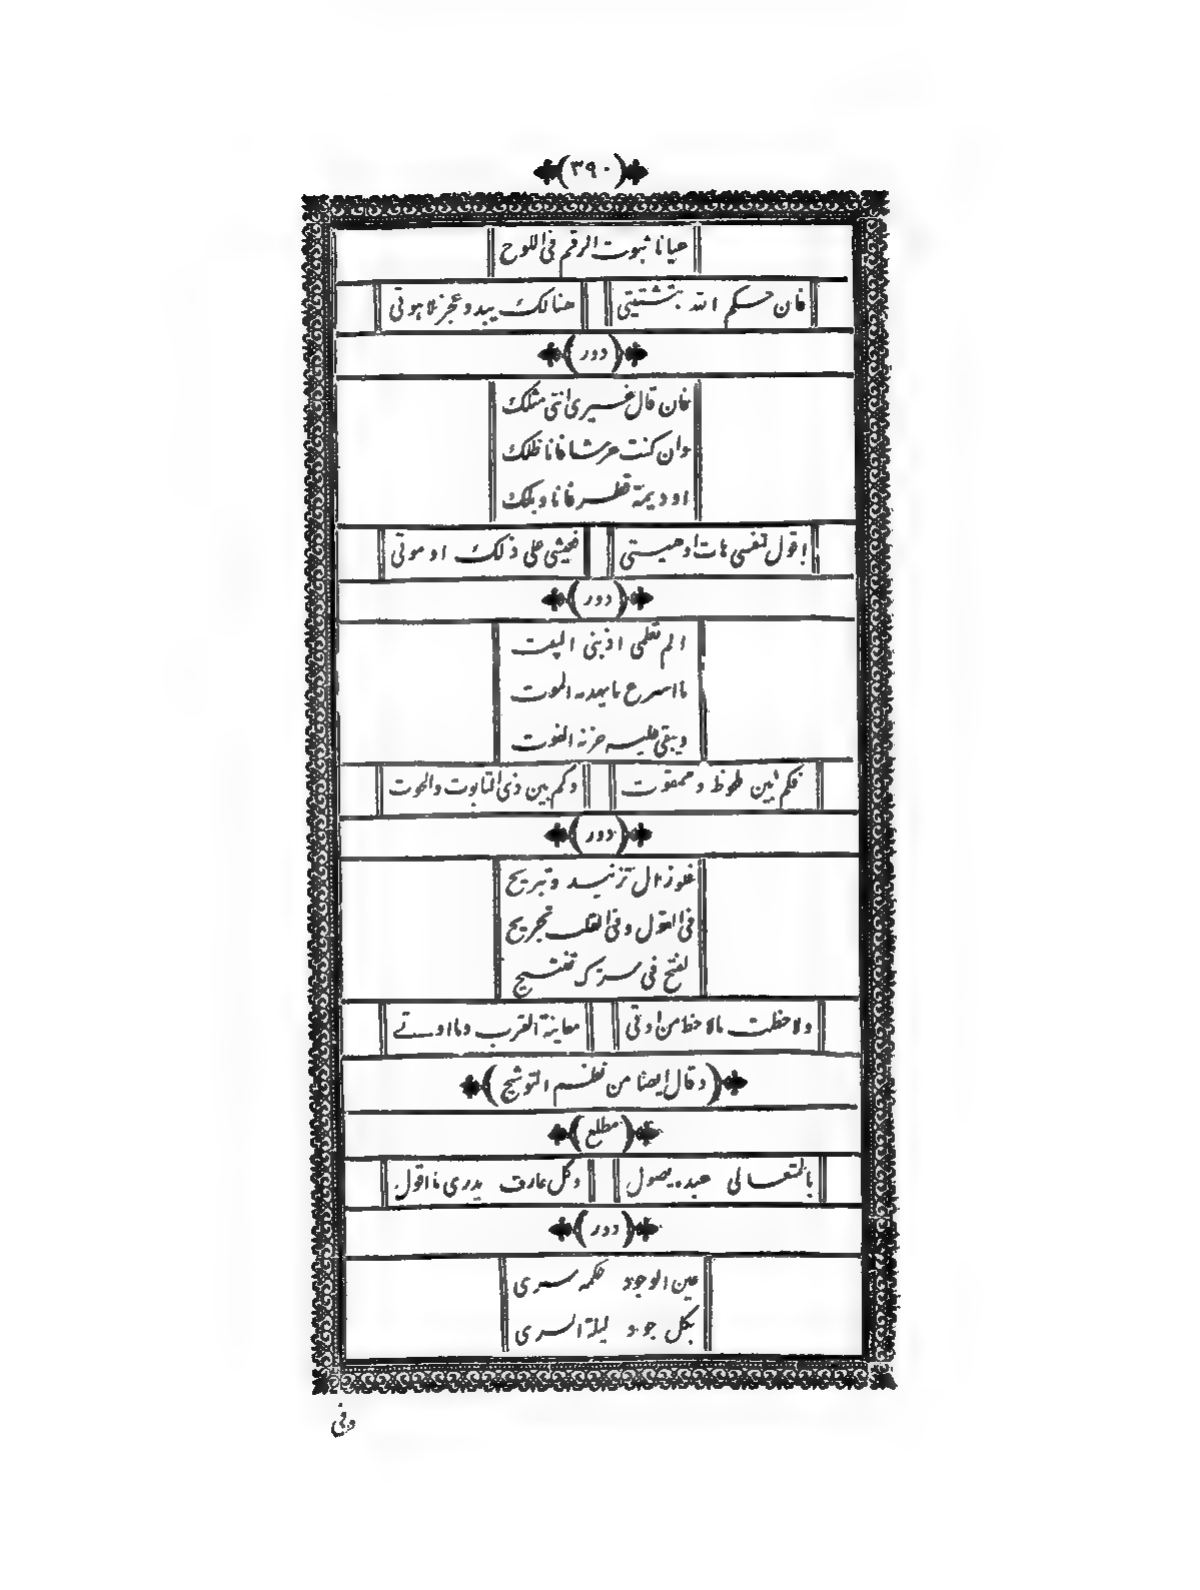 (٣٩٠)
عيانا ثبوت الرقم فى اللوح
فان حكم الله بتشتيتى هنالك يبدو عجز لاهوتى
(دور)
فان قال غيرى انتى مثلك
وان كنت عرشا فانا ظلك
او ديمة قطر فانا وبلك
اقول لنفسى هات او هيتى فعيشى على ذلك او موتى
(دور)
الم تعلمى اذ بنى البيت
ما اسرع ما يهدمه الموت
ويبقى عليه حزنه الفوت
فكم بين ملحوظ وممقوت وكم بين ذى التابوت والحوت
(دور)
وتبريح
فى القول وفى القلب تجريح
لفتح فى سرك تفتيح
ولاحظت مالاحظ من اوتى معاينة القرب وما اوتى
(وقال ايضا من نظم التوشيح)
(مطلع)
بالمتعالى عبده يصول وكل عارف يدرى ما اقول
(دور)
عين الوجود حكمه سرى
بكل جود ليلة السرى
وفى